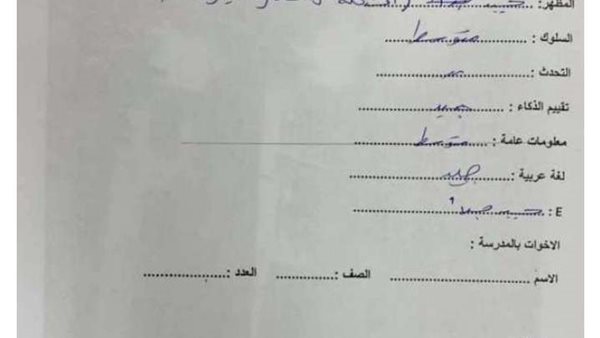 المظهر:
السلوك : متوسط
التحدث : جيد
تقييم الذكاء : جيد
معلومات عامة : متوسط
لغة عربية : جيد
E : جيد جداً
الاخوات بالمدرسة :
الاسم الصف : العدد :